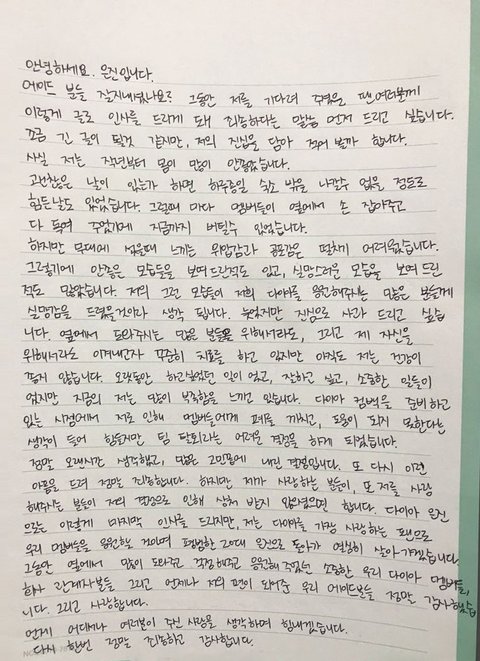 안녕하세요. 은진입니다.
에이드 분들 잘지내셨나요? 그동안 저를 기다려 주셨을 팬여러분께
이렇게 글로 인사를 드리게 돼 죄송하다는 말씀 먼저 드리고 싶습니다.
조금 긴 글이 될것 같지만, 저의 진심을 담아 적어 볼까 합니다.
사실 저는 작년부터 몸이 많이 안좋았습니다.
괜찮은 날이 있는가 하면 하루종일 숙소 밖을 나갈수 없을 정도로
힘든날도 있었습니다. 그럴때 마다 멤버들이 옆에서 손 잡아주고
다 독여 주었기에 지금까지 버틸수 있었습니다.
하지만 무대에 섰을때 느끼는 위압감과 공포감은 떨치기 어려웠습니다.
그렇기에 안좋은 모습들을 보여드린적도 있고, 실망스러운 모습을 보여 드린
적도 많았습니다. 저의 그런 모습들이 저희 다이아를 응원해주시는 많은 분들께
실망감을 드렸을것이라 생각 됩니다. 늦었지만 진심으로 사과 드리고 싶습
니다. 옆에서 도와주시는 많은 분들을 위해서라도, 그리고 제 자신을
위해서라도 이겨내고자 꾸준히 치료를 하고 있지만 아직도 저는 건강이
좋지 않습니다. 오랫동안 하고싶었던 일이 었고, 잘하고 싶고, 소중한 일들이
었지만 지금의 저는 많이 부족함을 느끼고 있습니다. 다이아 컴백을 준비하고
있는 시점에서 저로 인해 멤버들에게 폐를 끼치고, 도움이 되지 못한다는
생각이 들어 힘들지만 팀 탈퇴라는 어려운 결정을 하게 되었습니다.
정말 오랜시간 생각했고, 많은 고민끝에 내린 결정입니다. 또 다시 이런
아픔을 드려 정말 죄송합니다. 하지만 제가 사랑 하는 분들이, 또 저를 사랑
해주시는 분들이 저의 결정으로 인해 상처 받지 않으셨으면 합니다. 다이아 은진
으로는 이렇게 마지막 인사를 드리지만, 저는 다이아를 가장 사랑하는 팬으로
우리 멤버들을 응원할 것이며 평범한 20대 안은진으로 돌아가 열심히 살아가겠습니다.
그동안 옆에서 많이 도와주고 걱정해주고 응원해 주었던 소중한 우리 다이아 멤버들,
회사 관계자분들 그리고 언제나 저의 편이 되어준 우리 에이드분들 정말 감사했습
니다. 그리고 사랑합니다.
언제 어디서나 여러분이 주신 사랑을 생각하며 힘내겠습니다.
다시 한번 정말 죄송하고 감사합니다.